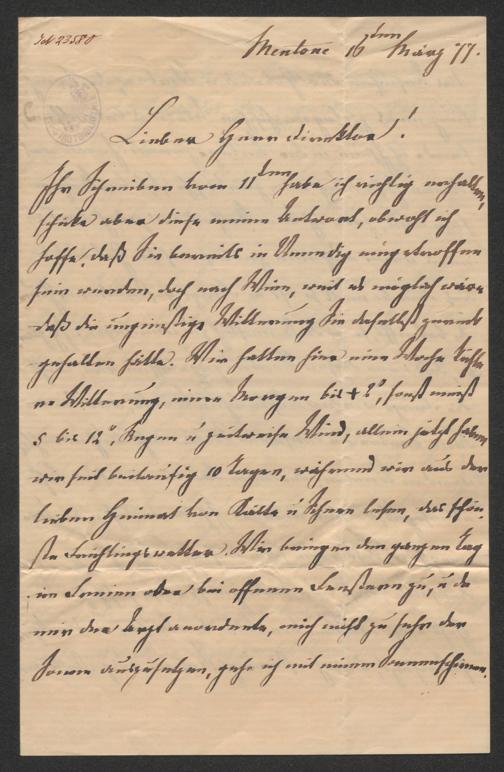 IN 23580
Mentone 16ten März 77.
Lieber Herr Direktor!
Ihr Schreiben vom 11ten habe ich richtig erhalten,
schicke aber diese meine Antwort, obwohl ich
hoffe, daß Sie bereits in Venedig eingetroffen
sein werden, doch nach Wien, weil es möglich wäre
daß die ungünstige Witterung Sie daselbst zurück
gehalten hätte. Wir hatten hier eine Woche kühle
re Witterung, einen Morgen bis + 2°, sonst meist
5 bis 12°, Regen u zeitweise Wind, allein jetzt haben
wir seit beiläufig 10 Tagen, während wir aus der
lieben Heimat von Kälte u Schnee lesen, das schön
ste Frühlingswetter. Wir bringen den ganzen Tag
im Freien oder bei offenen Fenstern zu, u da
mir der Arzt anordnete, mich nicht zu sehr der
Sonne auszusetzen, gehe ich mit einem Sonnenschirm